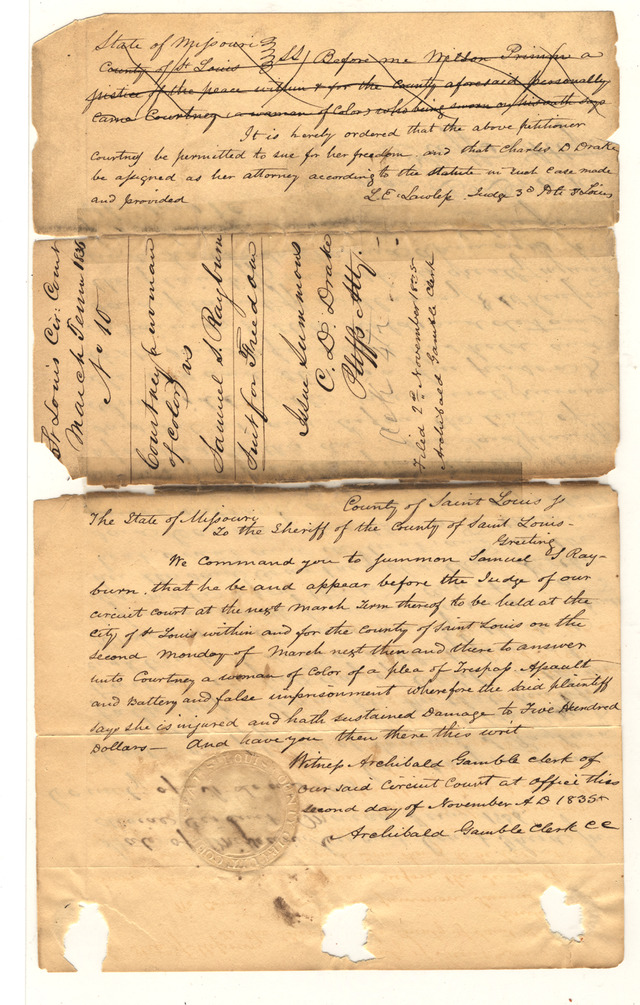 State of Missouri
County of St Louis } SS Before me Wilson Primm a
justice of the peace within & for the county aforesaid personally
came Courtney (a woman of Color) who being sworn on his oath says
It is hereby ordered that the above petitioner
Courtney be permitted to sue for her freedom and that Charles D Drake
be assigned as her attorney according to the statute in such case made
and provided
L. E. Lawless Judge 3d St Louis
St Louis Cir: Court
March Term 1836
No 10
Courtney a woman
of Color } vs
Samuel S. Rayburn
Suit for Freedom
Issue Summons
C. D. Drake
Plffs Atty.
Filed 2nd November 1835
Archibald Gamble Clerk
County of Saint Louis Ss
The State of Missouri
To the Sheriff of the County of Saint Louis-
Greeting
We Command you to Summon Samuel S Ray-
burn. that he be and appear before the Judge of our
circuit court at the next March Term thereof to be held at the
City of St Louis within and for the County of Saint Louis on the
second Monday of March next then and there to answer
unto Courtney a woman of Color of a plea of Trespass Assault
and Battery and false imprisonment wherefore the said plaintiff
says she is injured and hath sustained Damage to Five Hundred
Dollars— And have you then there this writ
Witness Archibald Gamble clerk of
our said Circuit Court at office this
second day of November A D 1835
Archibald Gamble Clerk CC